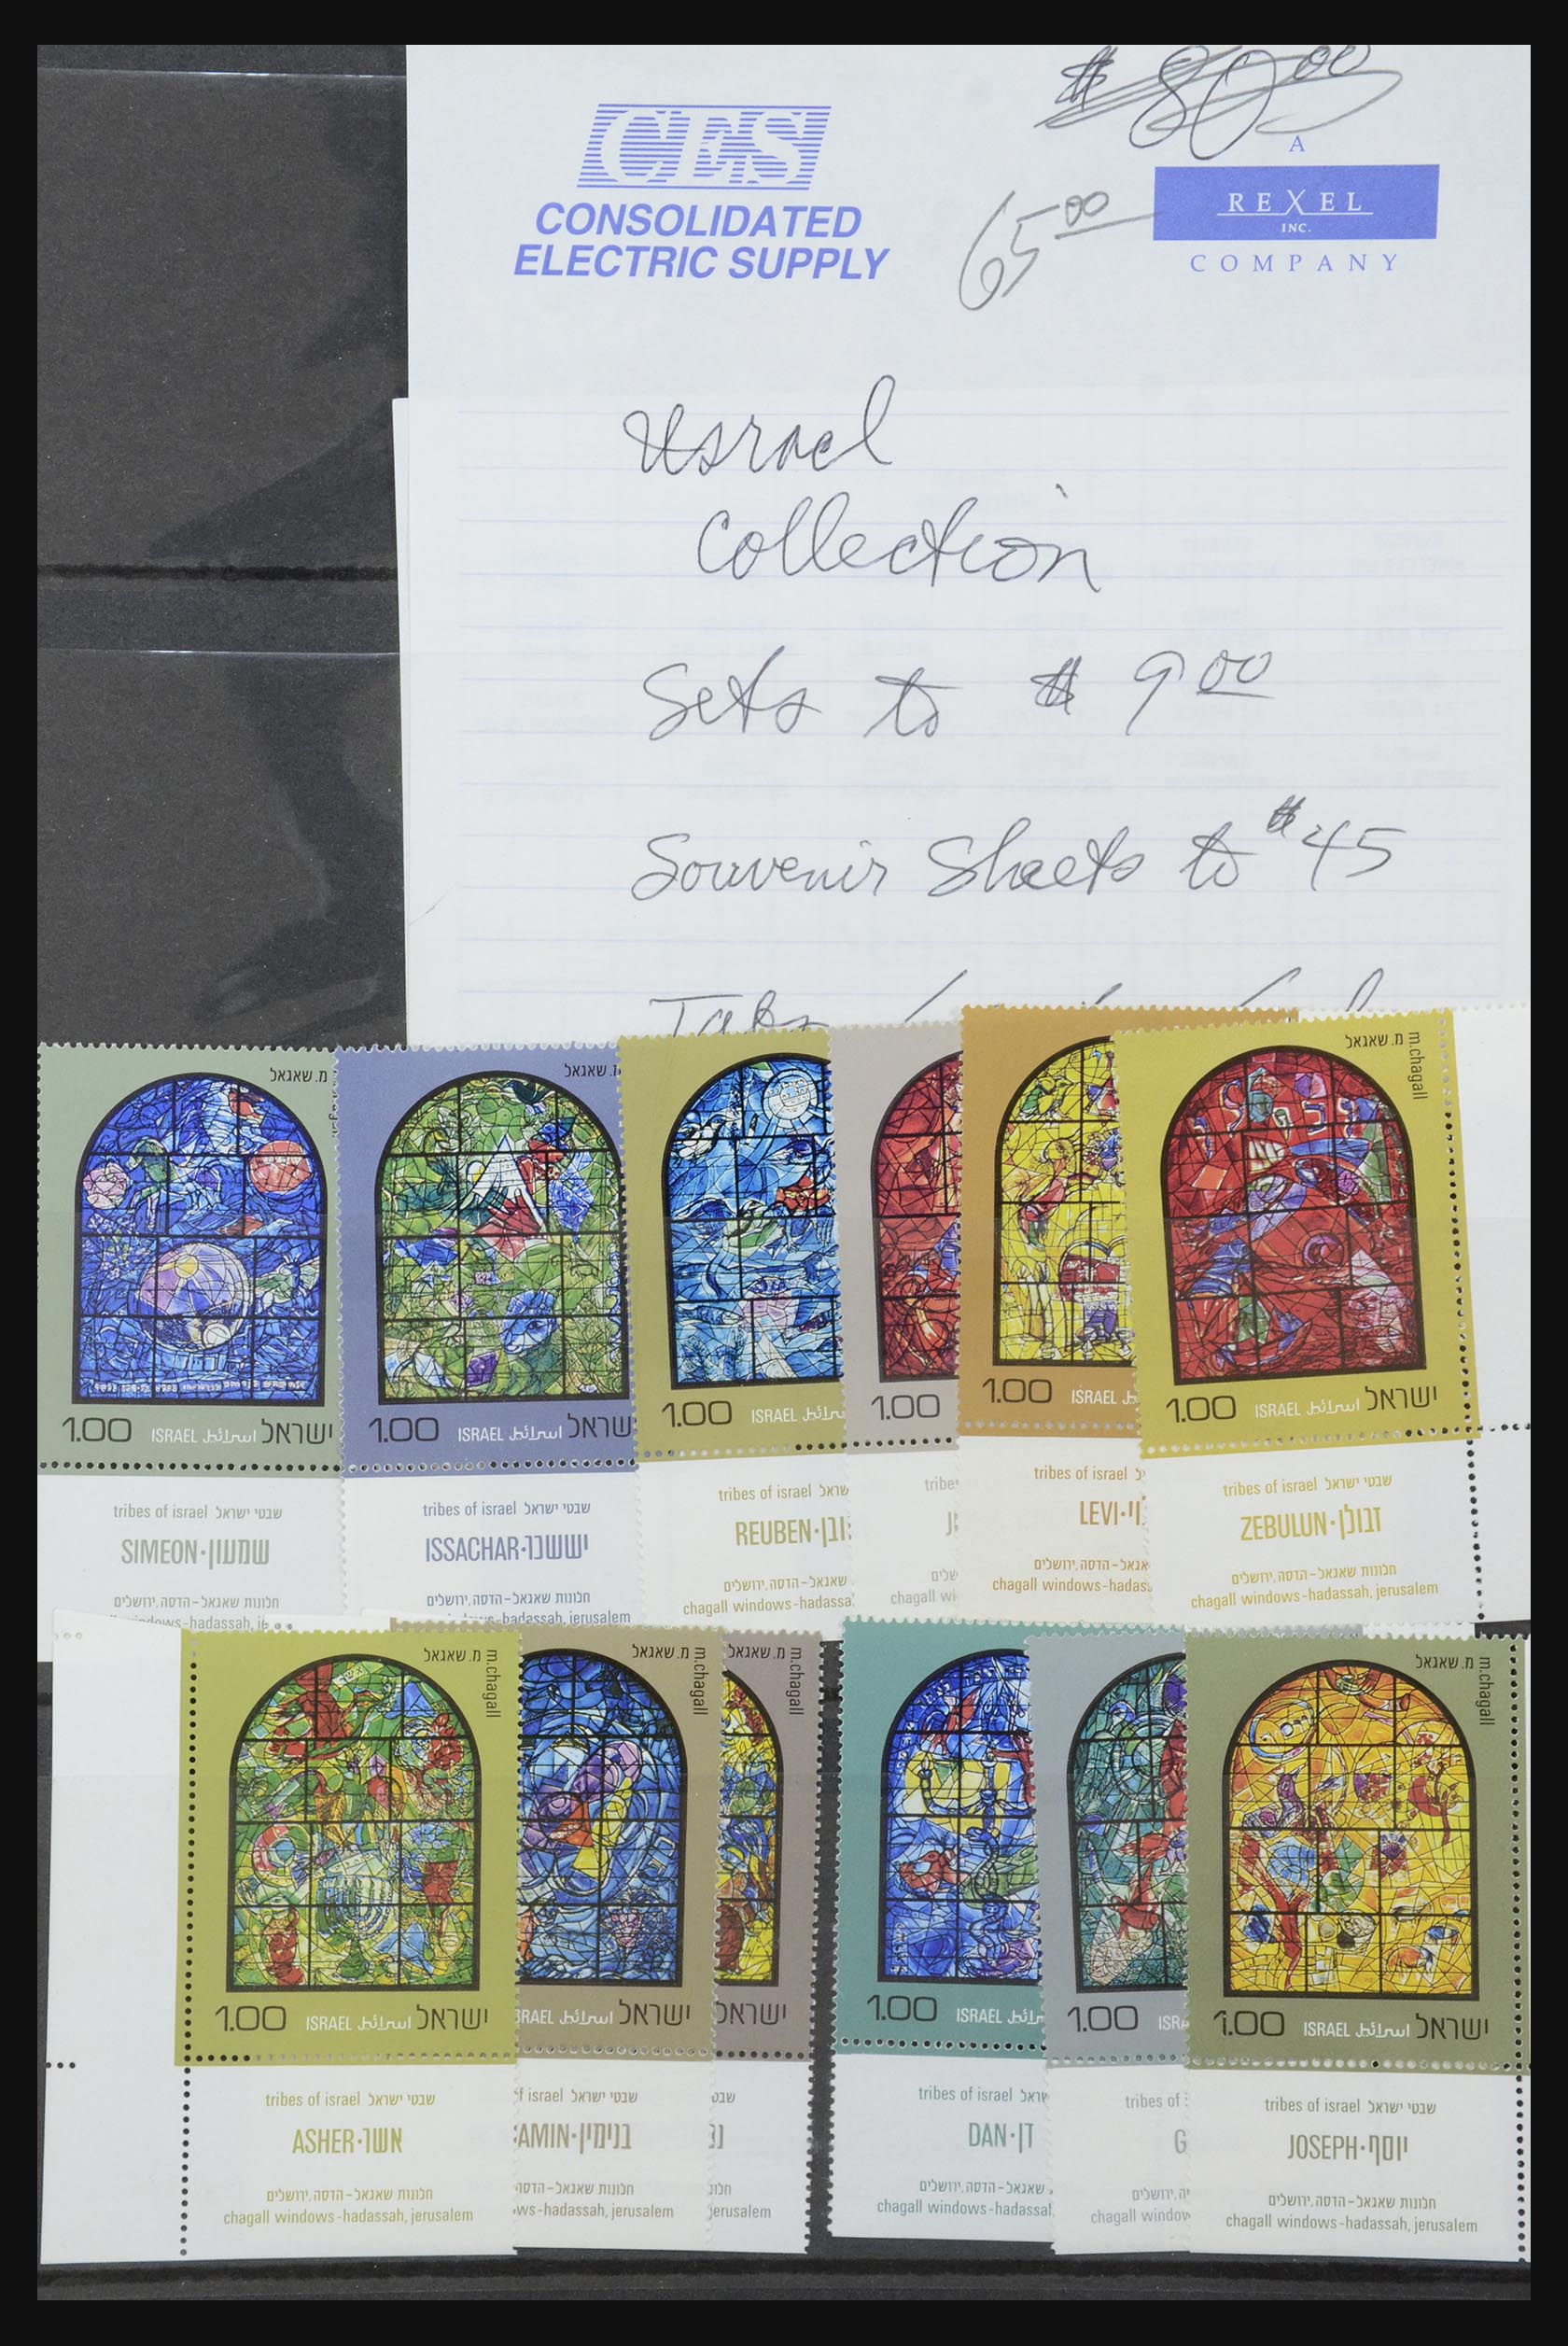 $ 80.00
CES
CONSOLIDATED
ELECTRIC SUPPLY
A
REXEL
INC.
COMPANY
65.00
Isrnel
Collection
Sets to $ 9.00
Souvenir Sheets to $45
Tabs
מ. שאגאל
1.00 ISRAEL اسرائيل ישראל
tribes of israel שבטי ישראל
SIMEON·שמעון
חלונות שאגאל-הדסה, ירושלים
מ. שאגאל
1.00 ISRAEL اسرائيل ישראל
tribes of israel שבטי ישראל
ISSACHAR·יששכר
חלונות שאגאל-הדסה, ירושלים
hadassah, jerusalem
1.00 ISRAEL
tribes of israel
REUBEN
שאגאל-הדסה, ירושלים
chagall windows-hadassa
1.00
tribes
chagall wi
1.00 ISRAEL
tribes of israel
LEVI
שאגאל-הדסה, ירושלים
chagall windows-hadas
מ. שאגאל
m.chagall
1.00 ISRAEL اسرائيل ישראל
tribes of israel שבטי ישראל
ZEBULUN·זבולן
חלונות שאגאל-הדסה, ירושלים
chagall windows-hadassah, jerusalem
מ. שאגאל
m.chagall
1.00 ISRAEL اسرائيل ישראל
tribes of israel שבטי ישראל
ASHER·אשר
חלונות שאגאל-הדסה, ירושלים
chagall windows-hadassah, jerusalem
מ. שאגאל
m.chagall
RAEL اسرائيل ישראל
f israel שבטי ישראל
AMIN·בנימין
שאגאל-הדסה, ירושלים
ws-hadassah, jerusalem
מ. שאגאל
m.chagall
ישראל
jerusalem
1.00 ISRAEL
tribes of israel
DAN·דן
שאגאל-הדסה, ירושלים
chagall windows-hadassa
1.00 ISRA
tribes of
G
chagall window
מ. שאגאל
m.chagall
1.00 ISRAEL اسرائيل ישראל
tribes of israel שבטי ישראל
JOSEPH·יוסף
חלונות שאגאל-הדסה, ירושלים
chagall windows-hadassah, jerusalem